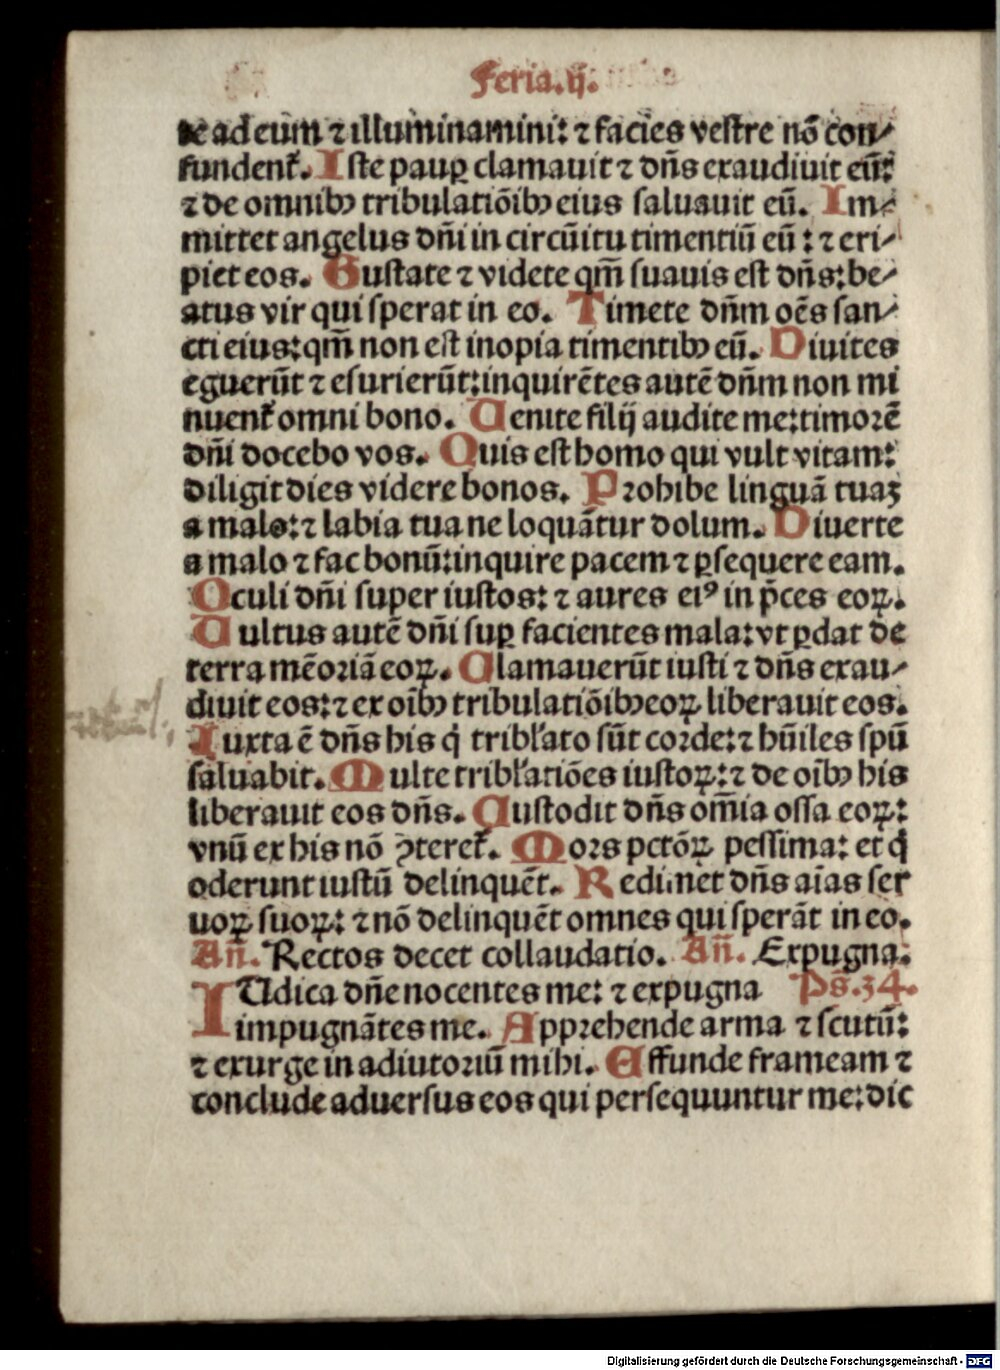 Feria.ij.
te ad eum ⁊ illuminamini: ⁊ facies vestre nō con⸗
fundent᷑. Iste paup̱ clamauit ⁊ dn̄s exaudiuit eū:
⁊ de omnibꝫ tribulatiōibꝫ eius saluauit eū. Im⸗
mittet angelus dn̄i in circūitu timentiū eū: ⁊ eri⸗
piet eos. Gustate ⁊ videte qm̄ suauis est dn̄s: be⸗
atus vir qui sperat in eo. Timete dn̄m oēs san⸗
cti eius: qm̄ non est inopia timentibꝫ eū. Diuites
eguerūt ⁊ esurierūt: inquirētes autē dn̄m non mi
nuent᷑ omni bono. Uenite filij audite me: timorē
dn̄i docebo vos. Quis est homo qui vult vitam:
diligit dies videre bonos. Prohibe linguā tuaꝫ
a malo: ⁊ labia tua ne loquātur dolum. Diuerte
a malo ⁊ fac bonū: inquire pacem ⁊ ꝑsequere eam.
Oculi dn̄i super iustos: ⁊ aures eiꝰ in p̄ces eoꝝ.
Uultus autē dn̄i sup̱ facientes mala: vt ꝑdat de
terra mēoriā eoꝝ. Clamauerūt iusti ⁊ dn̄s exau⸗
diuit eos: ⁊ ex oībꝫ tribulatiōibꝫ eoꝝ liberauit eos.
Iuxta ē dn̄s his q̇ tribl'ato sūt corde: ⁊ hūiles spū
saluabit. Multe tribl'atiōes iustoꝝ: ⁊ de oībꝫ his
liberauit eos dn̄s. Custodit dn̄s om̄ia ossa eoꝝ:
vnū ex his nō ꝯteret᷑. Mors pctōꝝ pessima: et q̇
oderunt iustū delinquēt. Redimet dn̄s aīas ser
uoꝝ suoꝝ: ⁊ nō delinquēt omnes qui sperāt in eo.
Añ. Rectos decet collaudatio. Añ. Expugna:
IUdica dn̄e nocentes me: ⁊ expugna Ps̄.34.
impugnātes me. Apprehende arma ⁊ scutū:
⁊ exurge in adiutoriū mihi. Effunde frameam ⁊
conclude aduersus eos qui persequuntur me: dic
Digitalisierung gefördert durch die Deutsche Forschungsgemeinschaft - DFG